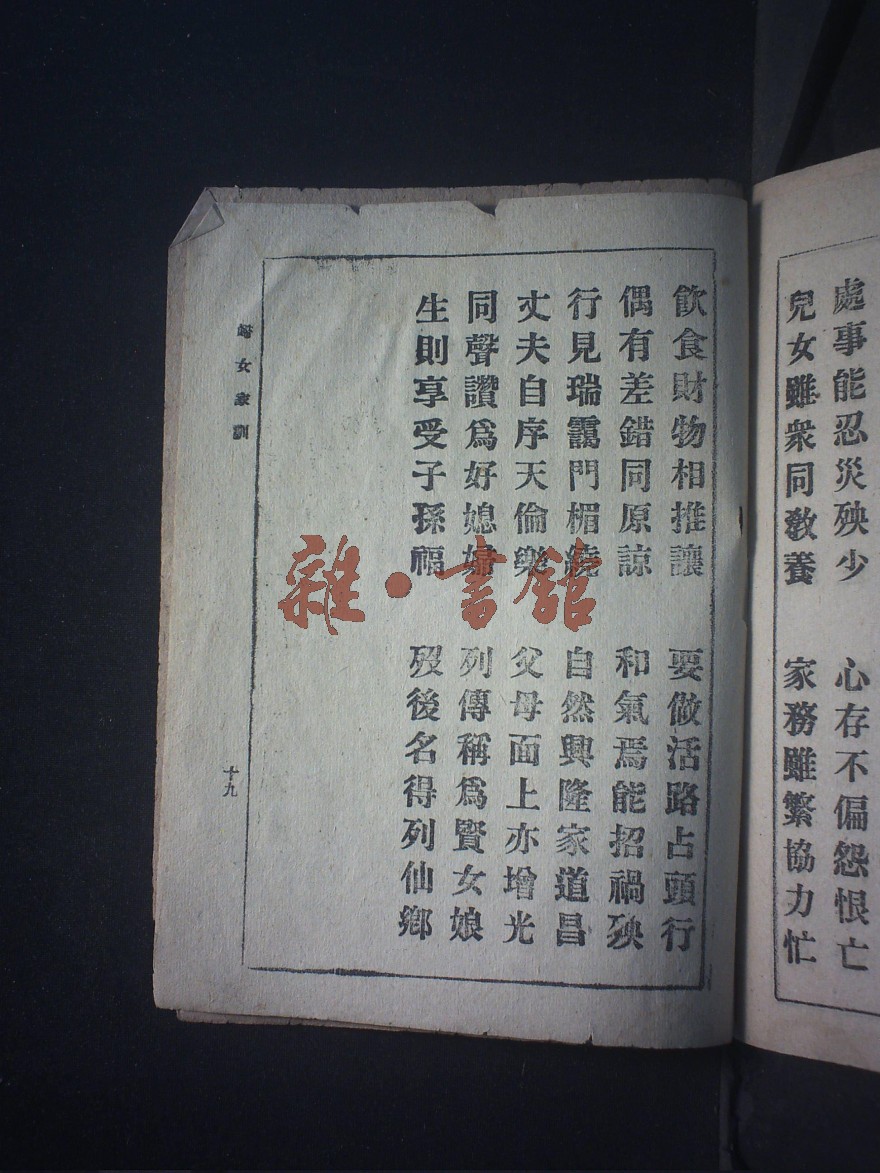 處事能忍災殃少　心存不偏怨恨亡
兒女雖衆同教養　家務雖繁協力忙
飲食財物相推讓　要做活路占頭行
偶有差錯同原諒　和氣焉能招禍殃
行見瑞靄門楣繞　自然興隆家道昌
丈夫自序天倫樂　父母面上亦增光
同聲讚爲好媳婦　列傳稱爲賢女娘
生則享受子孫福　歿後名得列仙鄉
婦女家訓
十九
雜·書館